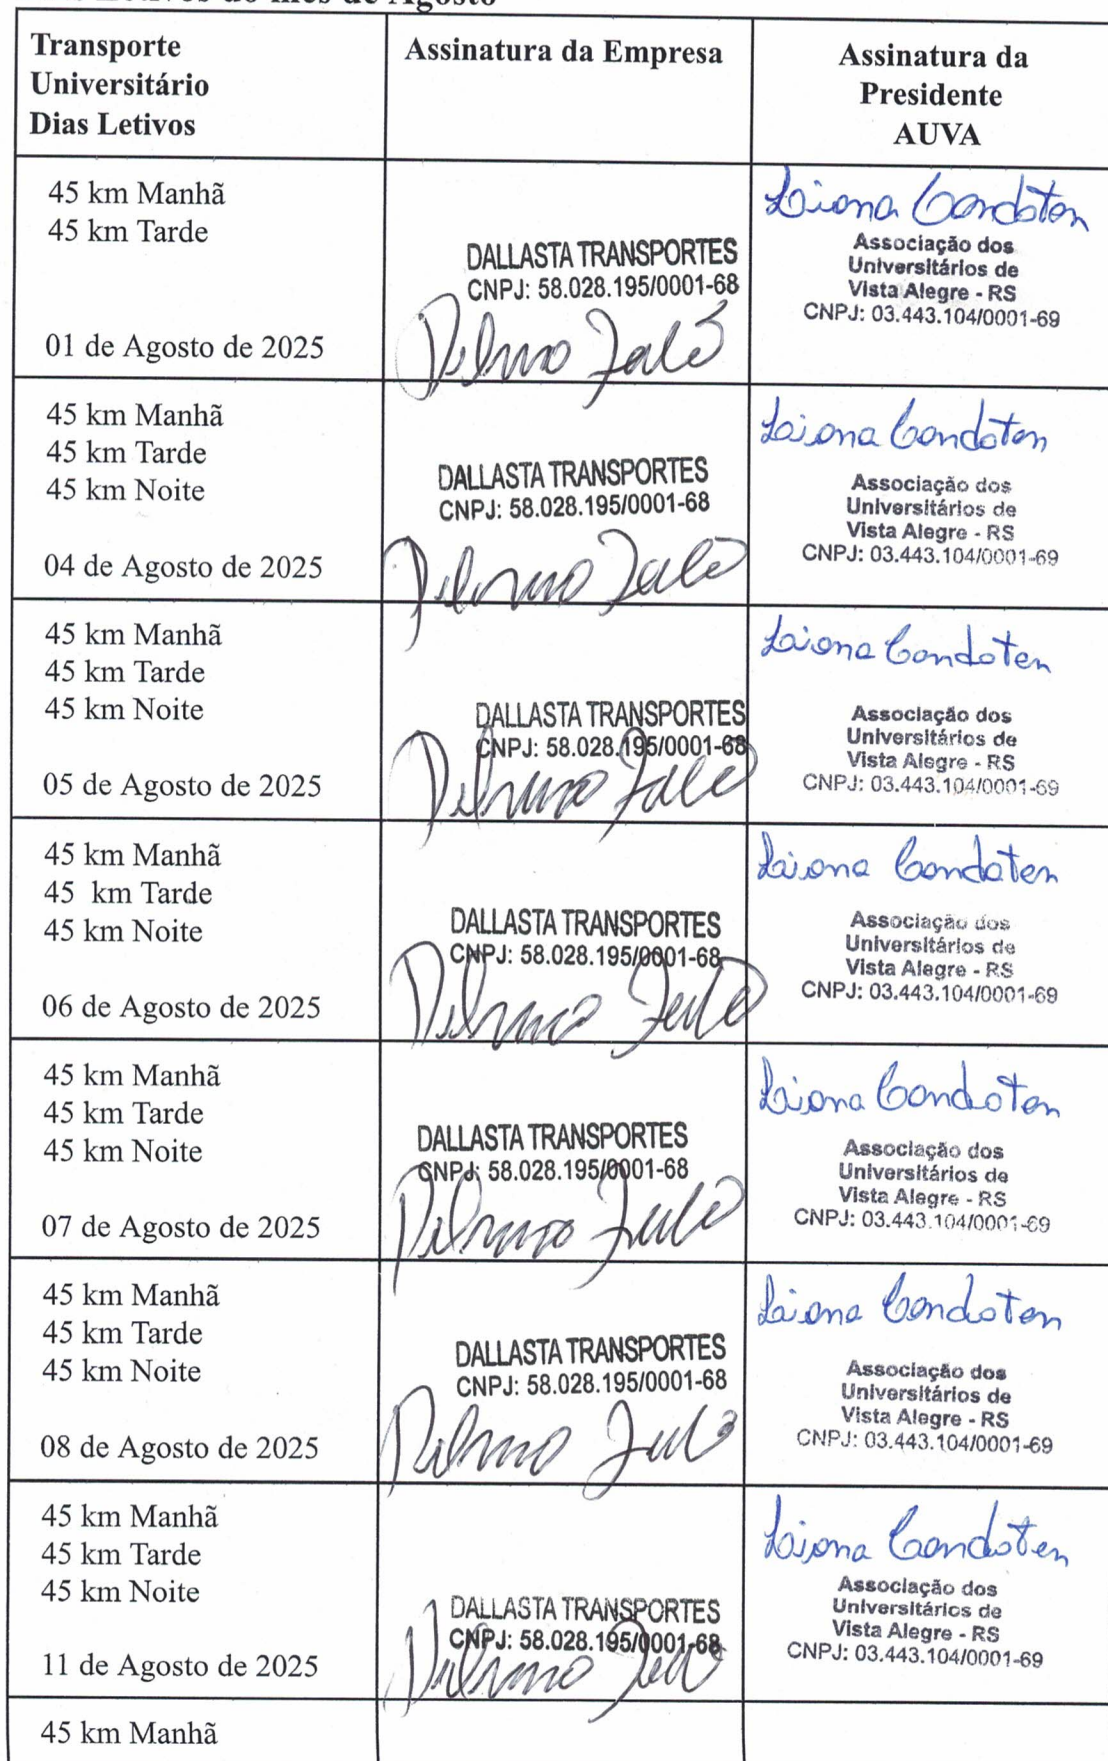 do mês de Agosto
Transporte
Universitário
Dias Letivos
Assinatura da Empresa
Assinatura da
Presidente
AUVA
45 km Manhã
45 km Tarde
01 de Agosto de 2025
DALLASTA TRANSPORTES
CNPJ: 58.028.195/0001-68
Associação dos
Universitários de
Vista Alegre - RS
CNPJ: 03.443.104/0001-69
45 km Manhã
45 km Tarde
45 km Noite
04 de Agosto de 2025
DALLASTA TRANSPORTES
CNPJ: 58.028.195/0001-68
Associação dos
Universitários de
Vista Alegre - RS
CNPJ: 03.443.104/0001-69
45 km Manhã
45 km Tarde
45 km Noite
05 de Agosto de 2025
DALLASTA TRANSPORTES
CNPJ: 58.028.195/0001-68
Associação dos
Universitários de
Vista Alegre - RS
CNPJ: 03.443.104/0001-69
45 km Manhã
45 km Tarde
45 km Noite
06 de Agosto de 2025
DALLASTA TRANSPORTES
CNPJ: 58.028.195/0001-68
Associação dos
Universitários de
Vista Alegre - RS
CNPJ: 03.443.104/0001-69
45 km Manhã
45 km Tarde
45 km Noite
07 de Agosto de 2025
DALLASTA TRANSPORTES
CNPJ: 58.028.195/0001-68
Associação dos
Universitários de
Vista Alegre - RS
CNPJ: 03.443.104/0001-69
45 km Manhã
45 km Tarde
45 km Noite
08 de Agosto de 2025
DALLASTA TRANSPORTES
CNPJ: 58.028.195/0001-68
Associação dos
Universitários de
Vista Alegre - RS
CNPJ: 03.443.104/0001-69
45 km Manhã
45 km Tarde
45 km Noite
11 de Agosto de 2025
DALLASTA TRANSPORTES
CNPJ: 58.028.195/0001-68
Associação dos
Universitários de
Vista Alegre - RS
CNPJ: 03.443.104/0001-69
45 km Manhã